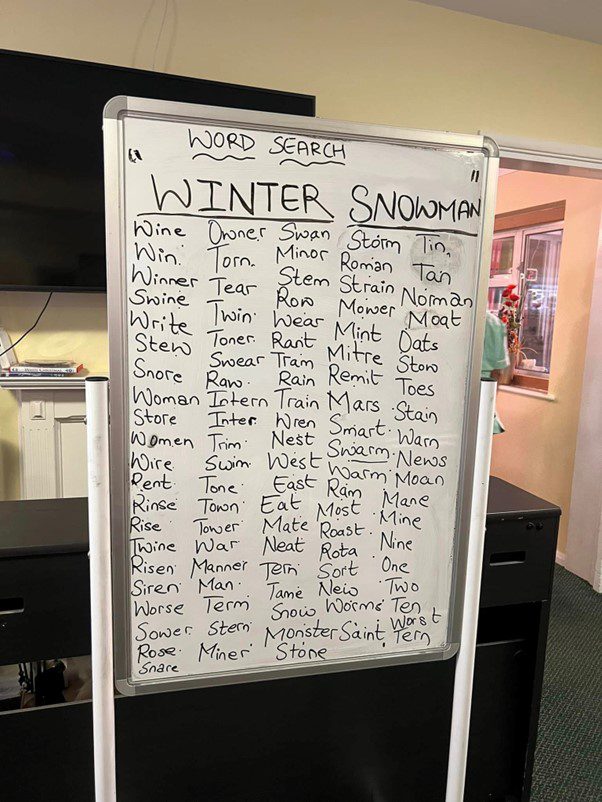 WORD SEARCH
" WINTER SNOWMAN "
Wine
Win.
Winner
Swine
Write
Stew
Snore
Woman
Store
Women
Wire
Rent
Rinse
Rise
Twine
Risen
Siren
Worse
Sower
Rose
Snare
Owner
Torn.
Tear
Twin
Toner
Swear
Raw
Intern
Inter
Trim
Swim
Tone
Town
Tower
War
Manner
Man
Term
Stern
Miner
Swan
Minor
Stem
Row
Wear
Rant
Tram
Rain
Train
Wren
Nest
West
East
Eat
Mate
Neat
Tern
Tame
Snow
Monster
Stone
Storm
Roman
Strain
Mower
Mint
Mitre
Remit
Mars
Smart
Swarm
Warm
Ram
Most
Roast
Rota
Sort
New
Worms
Saint
Tin,
Tan
Norman
Moat
Oats
Stow
Toes
Stain
Warn
News
Moan
Mane
Mine
Nine
One
Two
Ten
Worst
Tern